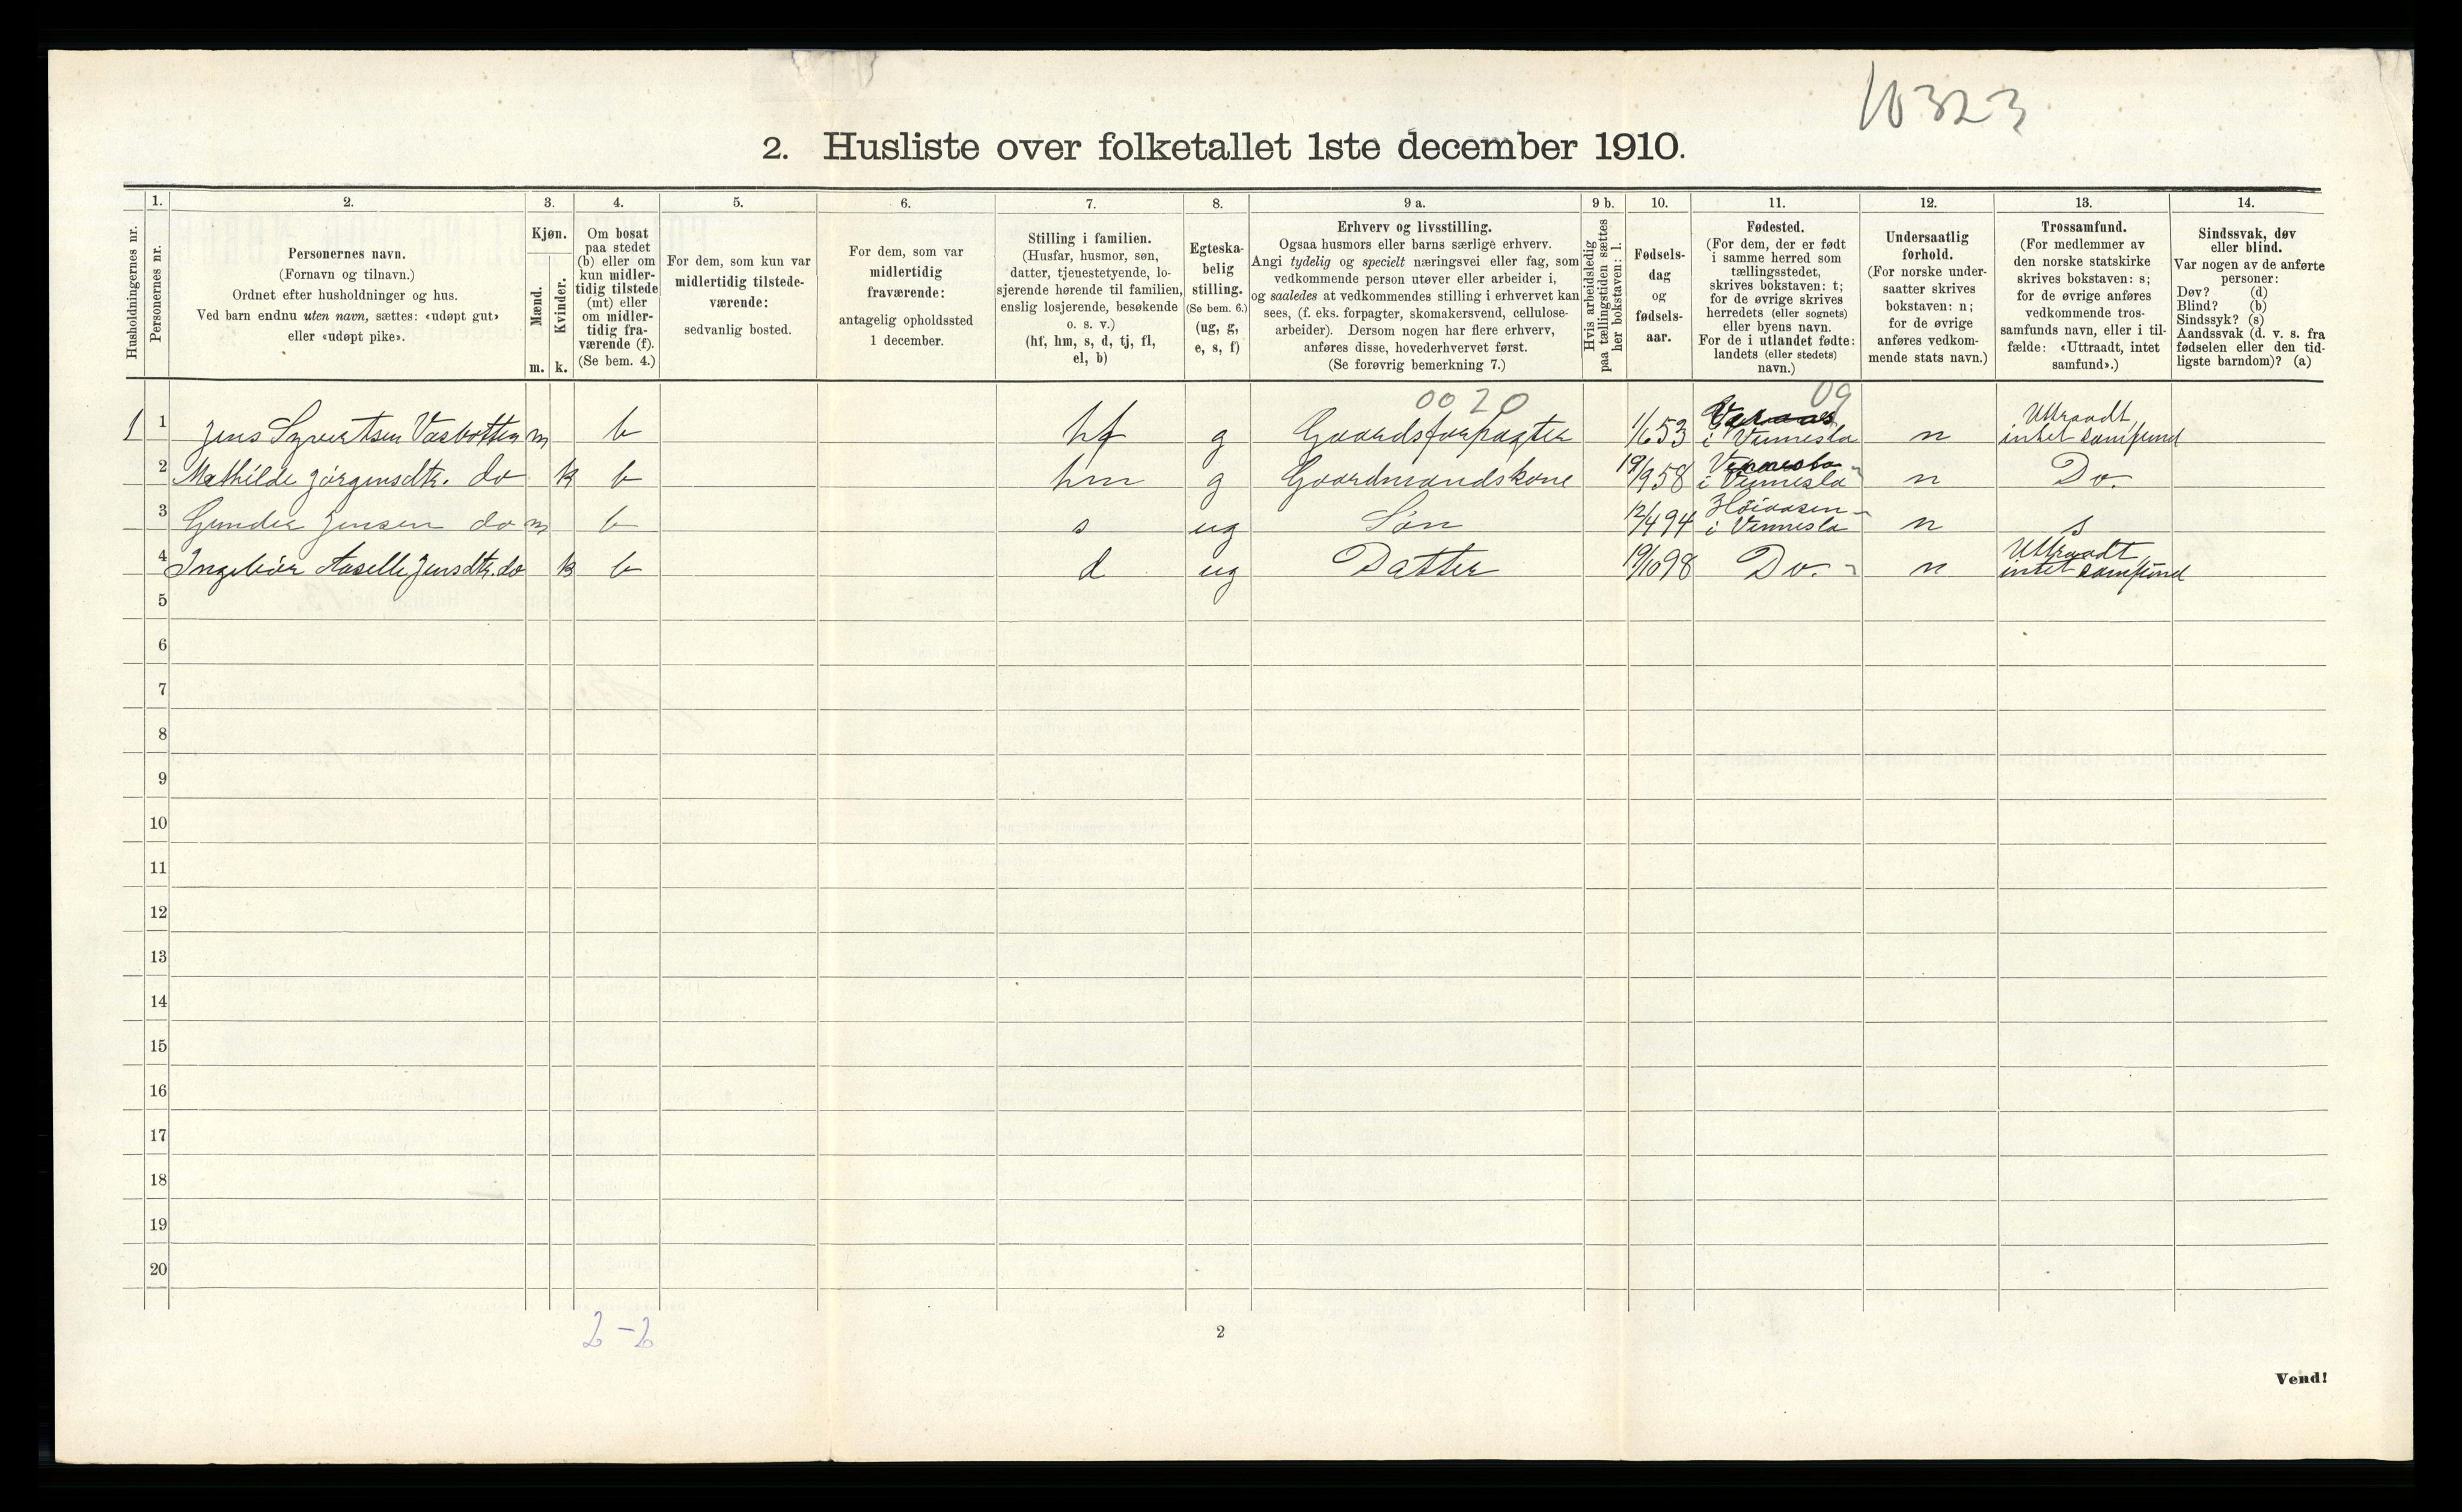 10323
2. Husliste over folketallet 1ste december 1910.
Husholdningernes nr.
1.
Personernes nr.
2.
Personernes navn.
(Fornavn og tilnavn.)
Ordnet efter husholdninger og hus.
Ved barn endnu uten navn, sættes: «udøpt gut»
eller «udøpt pike».
3.
Kjøn.
Mænd.
Kvinder.
m. k.
4.
Om bosat
paa stedet
(b) eller om
kun midler-
tidig tilstede
(mt) eller
om midler-
tidig fra-
værende (f).
(Se bem. 4.)
5.
For dem, som kun var
midlertidig tilstede-
værende:
sedvanlig bosted.
6.
For dem, som var
midlertidig
fraværende:
antagelig opholdssted
1 december.
7.
Stilling i familien.
(Husfar, husmor, søn,
datter, tjenestetyende, lo-
sjerende hørende til familien,
enslig losjerende, besøkende
o. s. v.)
(hf, hm, s, d, tj, fl,
el, b)
8.
Egteska-
belig
stilling.
(Se bem. 6.)
(ug, g,
e, s, f)
9 a.
Erhverv og livsstilling.
Ogsaa husmors eller barns særlige erhverv.
Angi tydelig og specielt næringsvei eller fag, som
vedkommende person utøver eller arbeider i,
og saaledes at vedkommendes stilling i erhvervet kan
sees, (f. eks. forpagter, skomakersvend, cellulose-
arbeider). Dersom nogen har flere erhverv,
anføres disse, hovederhvervet først.
(Se forøvrig bemerkning 7.)
9 b.
Hvis arbeidsledig
paa tællingstiden sættes
her bokstaven: l.
10.
Fødsels-
dag
og
fødsels-
aar.
11.
Fødested.
(For dem, der er født
i samme herred som
tællingsstedet,
skrives bokstaven: t;
for de øvrige skrives
herredets (eller sognets)
eller byens navn.
For de i utlandet fødte:
landets (eller stedets)
navn.)
12.
Undersaatlig
forhold.
(For norske under-
saatter skrives
bokstaven: n;
for de øvrige
anføres vedkom-
mende stats navn.)
13.
Trossamfund.
(For medlemmer av
den norske statskirke
skrives bokstaven: s;
for de øvrige anføres
vedkommende tros-
samfunds navn, eller i til-
fælde: «Uttraadt, intet
samfund».)
14.
Sindssvak, døv
eller blind.
Var nogen av de anførte
personer:
Døv? (d)
Blind? (b)
Sindssyk? (s)
Aandssvak (d. v. s. fra
fødselen eller den tid-
ligste barndom)? (a)
0020 09
1 1 Jens Syvertsen Vasbotten m b hf g Gaardsforpagter 1/6 53 i Vennesla n Uttraadt, intet samfund
2 Mathilde Jørgensdtr. do k b hm g Gaardmandskone 19/9 58 Vennesla i Vennesla n Do.
3 Gunder Jensen do m b s ug Søn 12/4 94 Høiaasen i Vennesla n s
4 Jensdtr. do k b d ug Datter 19/10 98 Do. n Uttraadt, intet samfund
5
6
7
8
9
10
11
12
13
14
15
16
17
18
19
20
2-2
2
Vend!